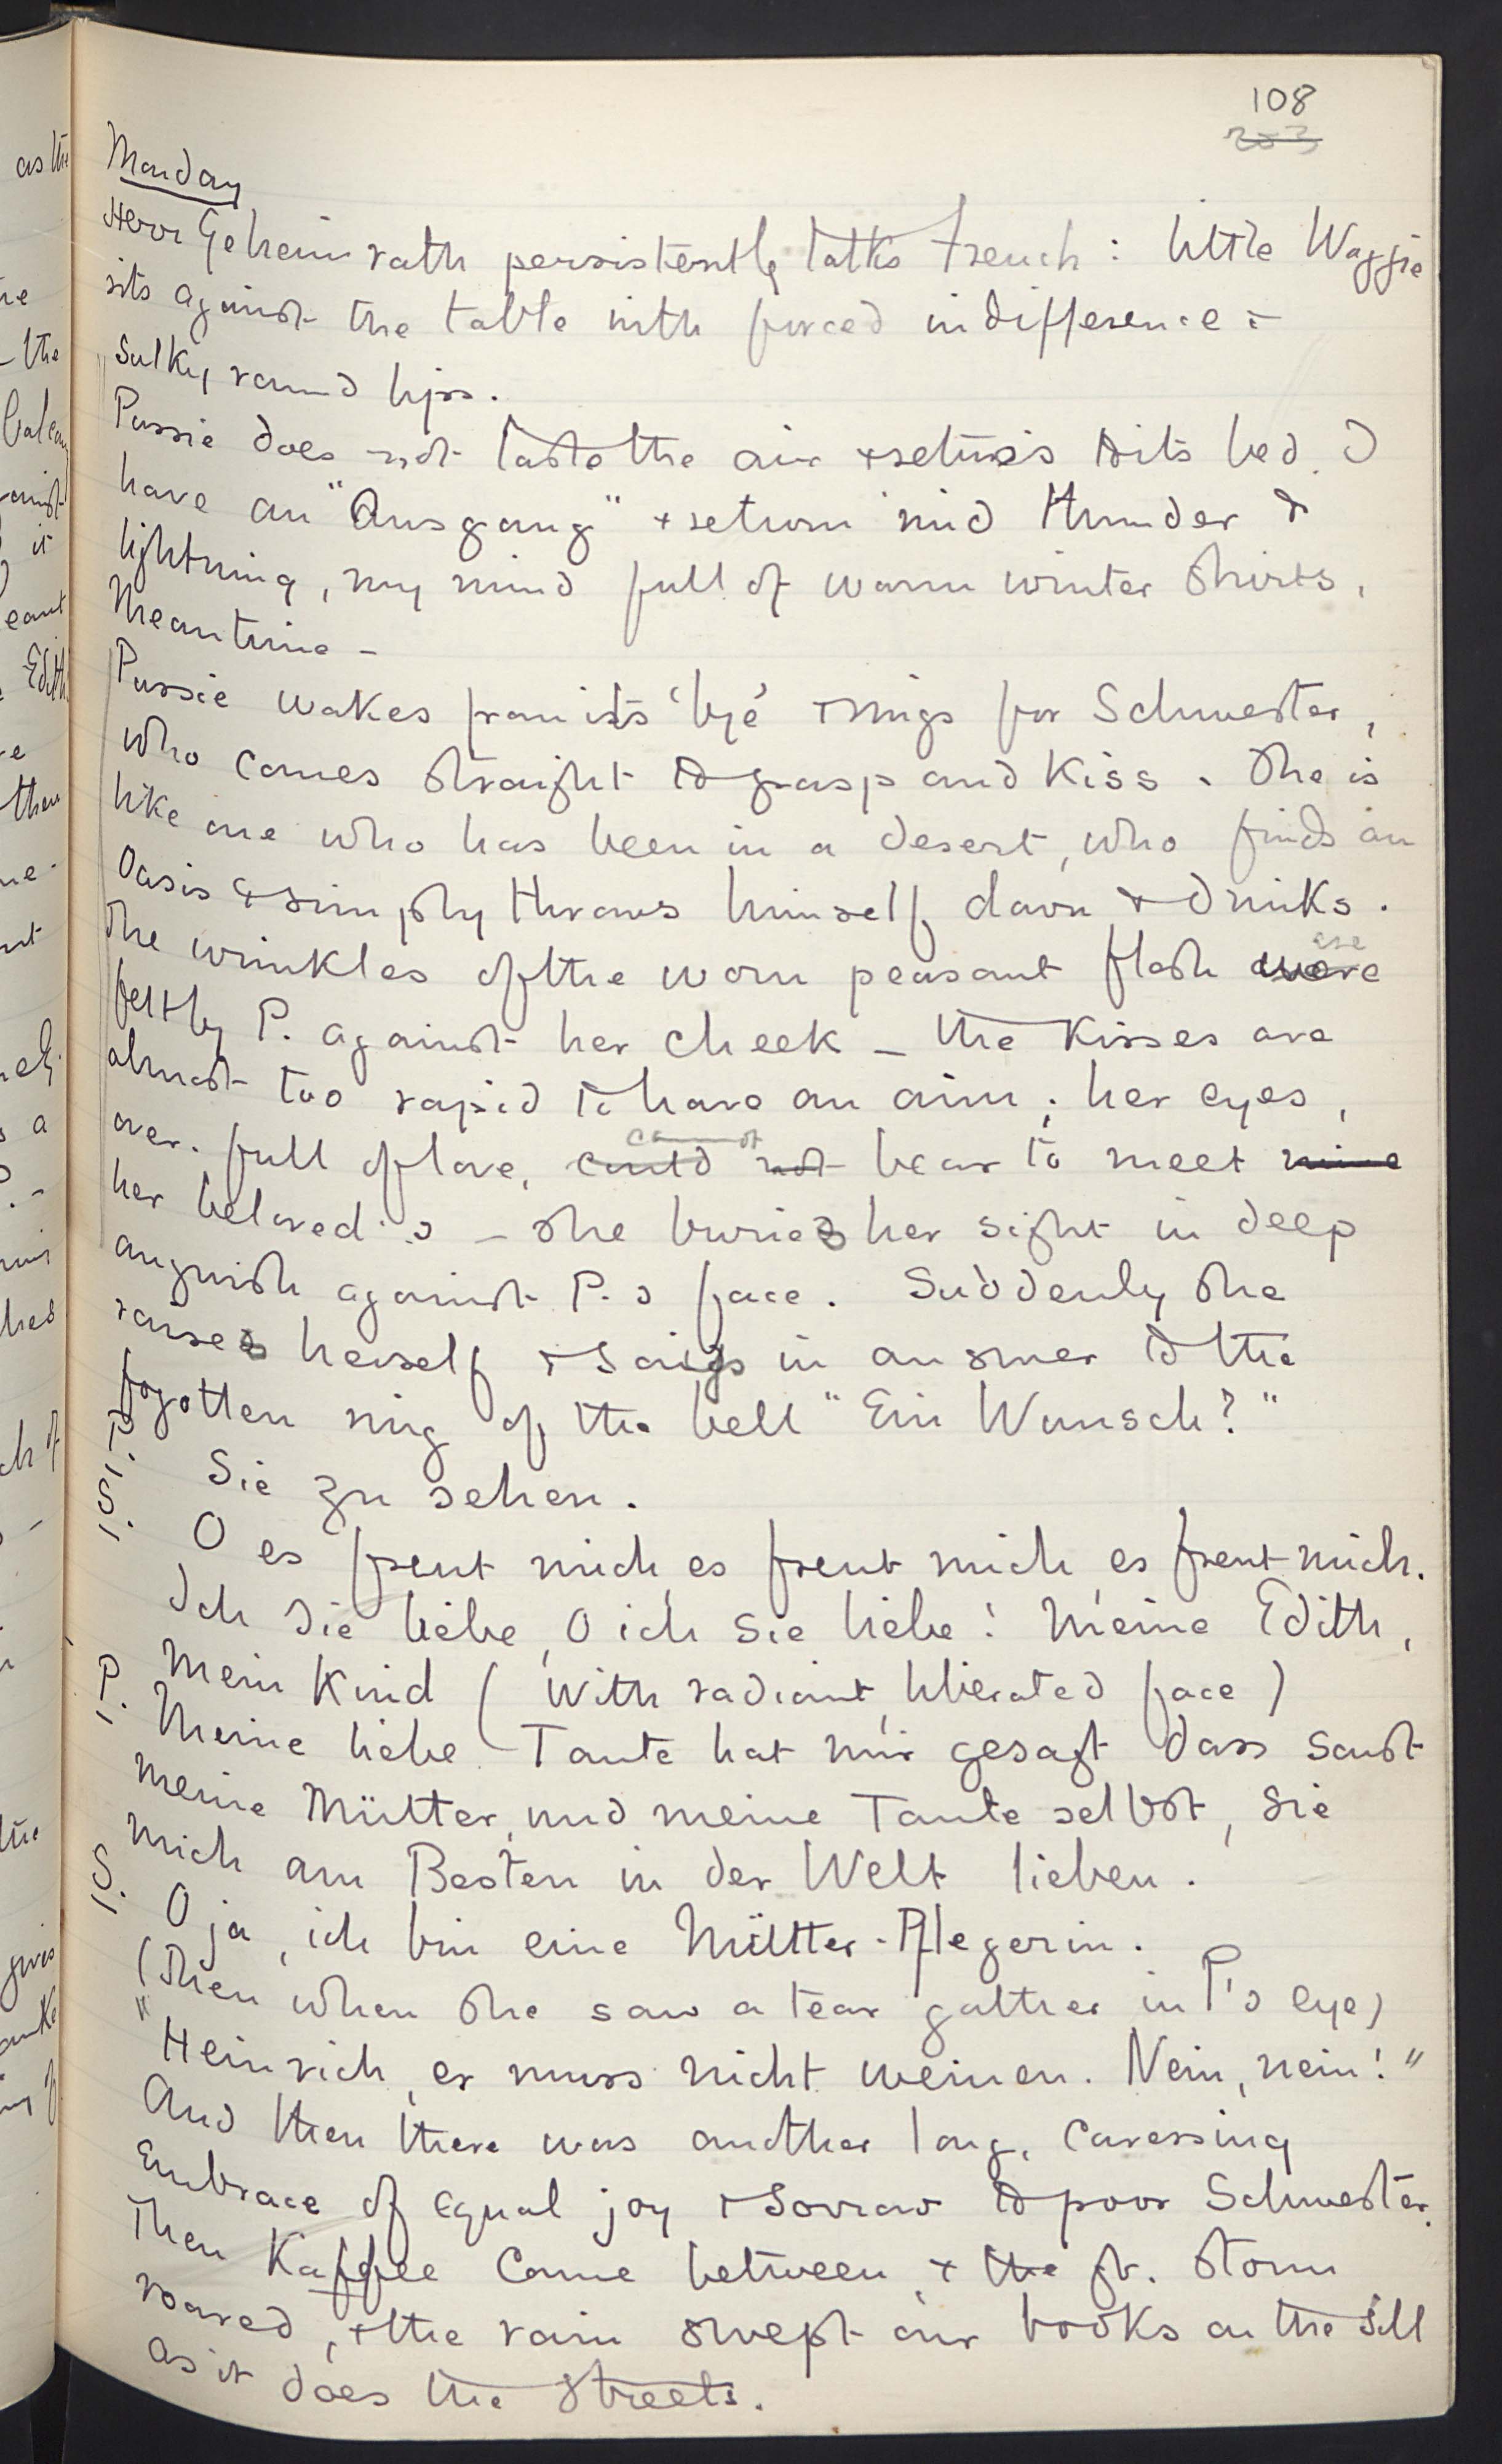 108
203
Monday
Herr Geheimrath persistently talks French : little Waggie
sits against the table with forced indifference &
sulky, round lips.
Pussie does not taste the air & returns to its bed. I
have an "Ausgang" & return mid thunder &
lightning, my mind full of warm winter shirts.
Meantime –
Pussie wakes from its 'bye' & rings for Schwester,
who comes straight to grasp and kiss. She is
like one who has been in a desert, who finds an
Oasis & simply throws himself down & drinks.
The wrinkles of the worn peasant flesh were are
felt by P. against her cheek – the kisses are
almost too rapid to have an aim; her eyes,
over-full of love, could not cannot bear to meet mine
her beloved's – she buries her sight in deep
anguish against P.s face. Suddenly she
raises herself & says in answer to the
forgotten ring of the bell "Ein Wunsch?"
P. Sie zu sehen.
S. O es freut mich, es freut mich, es freut mich.
Ich Sie liebe, O ich Sie liebe! Meine Edith,
Mein Kind (with radiant, liberated face)
P. Meine liebe Tante hat mir gesagt dass sonst
meine Mütter, und meine Tante selbst, Sie
mich am Besten in der Welt lieben.
S. O ja, ich bin eine Mütter-Pflegerin.
(Then when she saw a tear gather in P's eye)
"Heinrich, er muss nicht weinen. Nein, nein!"
And then there was another long, caressing
Embrace of equal joy & sorrow to poor Schwester.
Then Kaffee came between, & the gt. storm
roared, & the rain swept our books on the sill
as it does the streets.